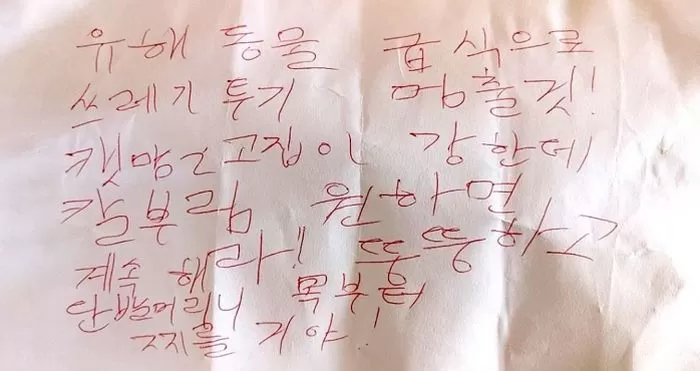 유해 동물 급식으로
쓰레기 투기 멈출것!
캣맘 고집이 강한데
칼부림 원하면
계속 해라! 뚱뚱하고
단발머리 니 목부터
찌를 거야!